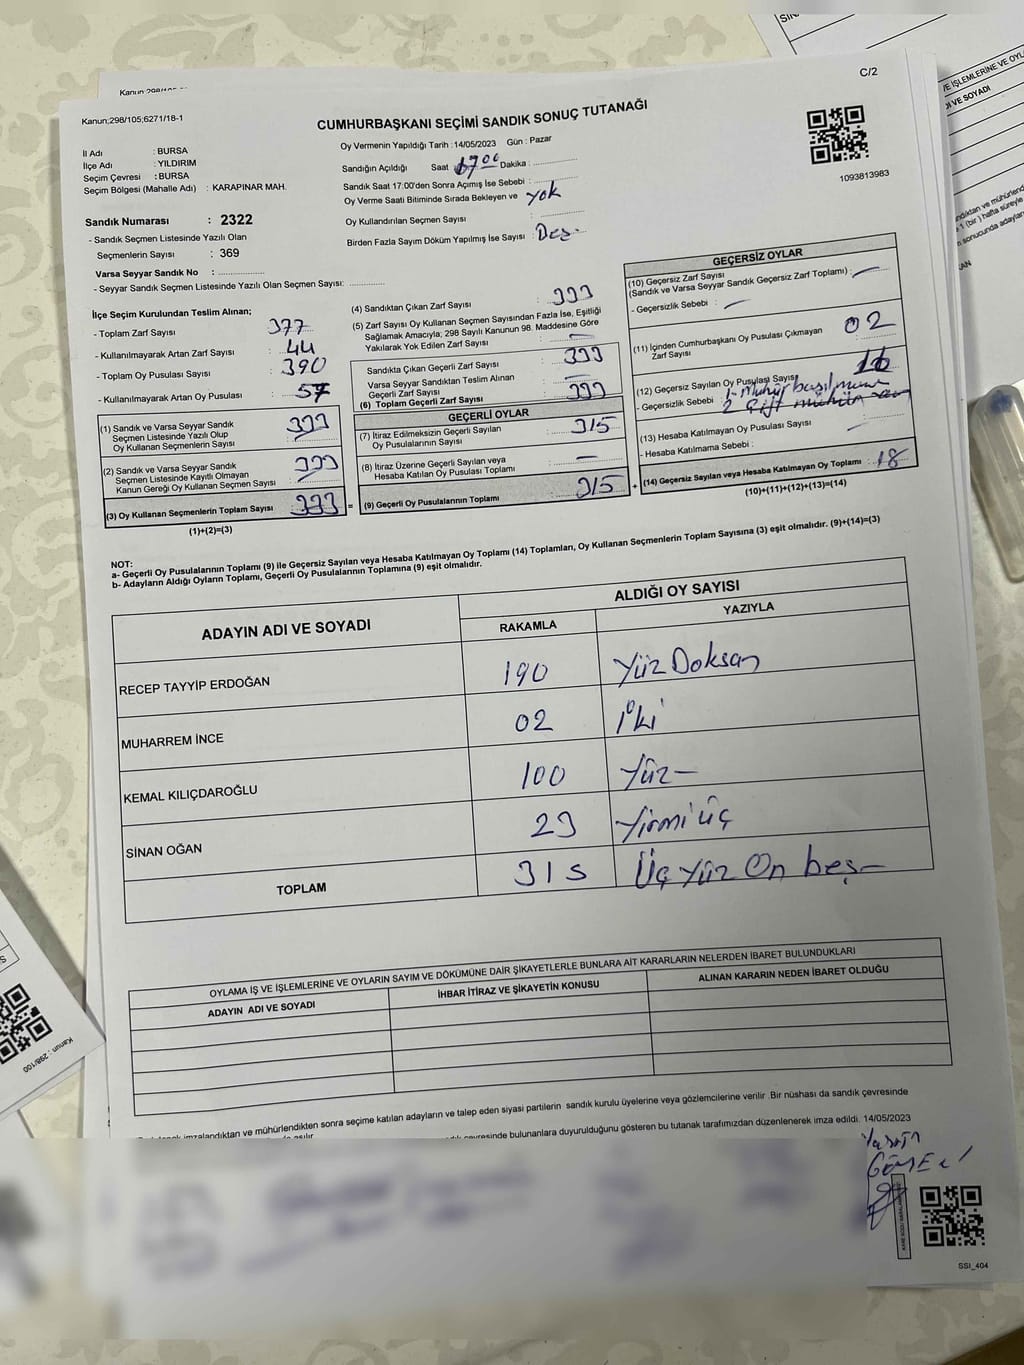 C/2
Kanun;298/105;6271/18-1
CUMHURBAŞKANI SEÇİMİ SANDIK SONUÇ TUTANAĞI
İl Adı : BURSA
İlçe Adı : YILDIRIM
Seçim Çevresi : BURSA
Seçim Bölgesi (Mahalle Adı) : KARAPINAR MAH.
Sandık Numarası : 2322
- Sandık Seçmen Listesinde Yazılı Olan
Seçmenlerin Sayısı : 369
Varsa Seyyar Sandık No : ..............
- Seyyar Sandık Seçmen Listesinde Yazılı Olan Seçmen Sayısı: ..............
Oy Vermenin Yapıldığı Tarih : 14/05/2023 Gün : Pazar
Sandığın Açıldığı Saat 1700 Dakika : ..............
Sandık Saat 17:00'den Sonra Açımış İse Sebebi : ..............
Oy Verme Saati Bitiminde Sırada Bekleyen ve yok
Oy Kullandırılan Seçmen Sayısı : ..............
Birden Fazla Sayım Döküm Yapılmış İse Sayısı
1093813983
İlçe Seçim Kurulundan Teslim Alınan;
- Toplam Zarf Sayısı : 377
- Kullanılmayarak Artan Zarf Sayısı : 44
- Toplam Oy Pusulası Sayısı : 390
- Kullanılmayarak Artan Oy Pusulası : 57
(1) Sandık ve Varsa Seyyar Sandık
Seçmen Listesinde Yazılı Olup
Oy Kullanan Seçmenlerin Sayısı : 333
(2) Sandık ve Varsa Seyyar Sandık
Seçmen Listesinde Kayıtlı Olmayan
Kanun Gereği Oy Kullanan Seçmen Sayısı : 333
(3) Oy Kullanan Seçmenlerin Toplam Sayısı : 333
(1)+(2)=(3)
(4) Sandıktan Çıkan Zarf Sayısı : 333
(5) Zarf Sayısı Oy Kullanan Seçmen Sayısından Fazla İse, Eşitliği
Sağlamak Amacıyla, 298 Sayılı Kanunun 98. Maddesine Göre
Yakılarak Yok Edilen Zarf Sayısı : —
Sandıkta Çıkan Geçerli Zarf Sayısı : 333
Varsa Seyyar Sandıktan Teslim Alınan
Geçerli Zarf Sayısı : —
(6) Toplam Geçerli Zarf Sayısı : 333
GEÇERLİ OYLAR
(7) İtiraz Edilmeksizin Geçerli Sayılan
Oy Pusulalarının Sayısı : 315
(8) İtiraz Üzerine Geçerli Sayılan veya
Hesaba Katılan Oy Pusulası Toplamı : —
(9) Geçerli Oy Pusulalarının Toplamı : 315
GEÇERSİZ OYLAR
(10) Geçersiz Zarf Sayısı
(Sandık ve Varsa Seyyar Sandık Geçersiz Zarf Toplamı) : —
- Geçersizlik Sebebi : —
(11) İçinden Cumhurbaşkanı Oy Pusulası Çıkmayan
Zarf Sayısı : 02
(12) Geçersiz Sayılan Oy Pusulası Sayısı : 16
- Geçersizlik Sebebi : 1- Mühür basılmama
2 Çift mühür
(13) Hesaba Katılmayan Oy Pusulası Sayısı : —
- Hesaba Katılmama Sebebi :
(14) Geçersiz Sayılan veya Hesaba Katılmayan Oy Toplamı : 18
(10)+(11)+(12)+(13)=(14)
NOT:
a- Geçerli Oy Pusulalarının Toplamı (9) ile Geçersiz Sayılan veya Hesaba Katılmayan Oy Toplamı (14) Toplamları, Oy Kullanan Seçmenlerin Toplam Sayısına (3) eşit olmalıdır. (9)+(14)=(3)
b- Adayların Aldığı Oyların Toplamı, Geçerli Oy Pusulalarının Toplamına (9) eşit olmalıdır.
ADAYIN ADI VE SOYADI ALDIĞI OY SAYISI
RAKAMLA YAZIYLA
RECEP TAYYİP ERDOĞAN 190 Yüz Doksan
MUHARREM İNCE 02 iki
KEMAL KILIÇDAROĞLU 100 Yüz—
SİNAN OĞAN 23 Yirmi üç
TOPLAM 315 Üç Yüz On beş—
OYLAMA İŞ VE İŞLEMLERİNE VE OYLARIN SAYIM VE DÖKÜMÜNE DAİR ŞİKAYETLERLE BUNLARA AİT KARARLARIN NELERDEN İBARET BULUNDUKLARI
ADAYIN ADI VE SOYADI İHBAR İTİRAZ VE ŞİKAYETİN KONUSU ALINAN KARARIN NEDEN İBARET OLDUĞU
imzalandıktan ve mühürlendikten sonra seçime katılan adayların ve talep eden siyasi partilerin sandık kurulu üyelerine veya gözlemcilerine verilir .Bir nüshası da sandık çevresinde
çevresinde bulunanlara duyurulduğunu gösteren bu tutanak tarafımızdan düzenlenerek imza edildi. 14/05/2023
SSI_404
Kanun : 298/100